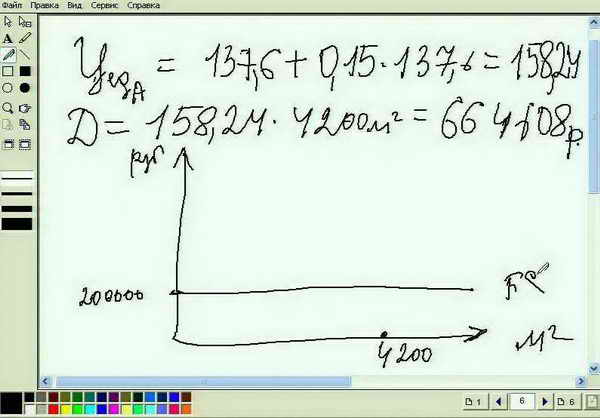 Файл Правка Вид Сервис Справка
Цед А = 137,6 + 0,15 · 137,6 = 158,24
Д = 158,24 · 4200м² = 664608р.
руб
200000
FC
4200
м²
1 6 6